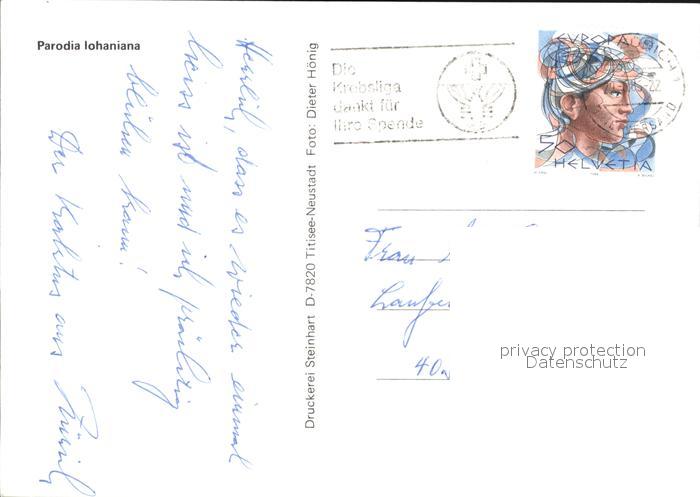 Parodia lohaniana
Herrlich, dass es wieder einmal
heiss ist und ich prächtig
blühen kann!
Der Kaktus aus Zürich
Druckerei Steinhart D-7820 Titisee-Neustadt Foto: Dieter Hönig
Die
Krebsliga
dankt für
Ihre Spende
EUROPA
50
HELVETIA
Frau
Laufen
40
privacy protection
Datenschutz